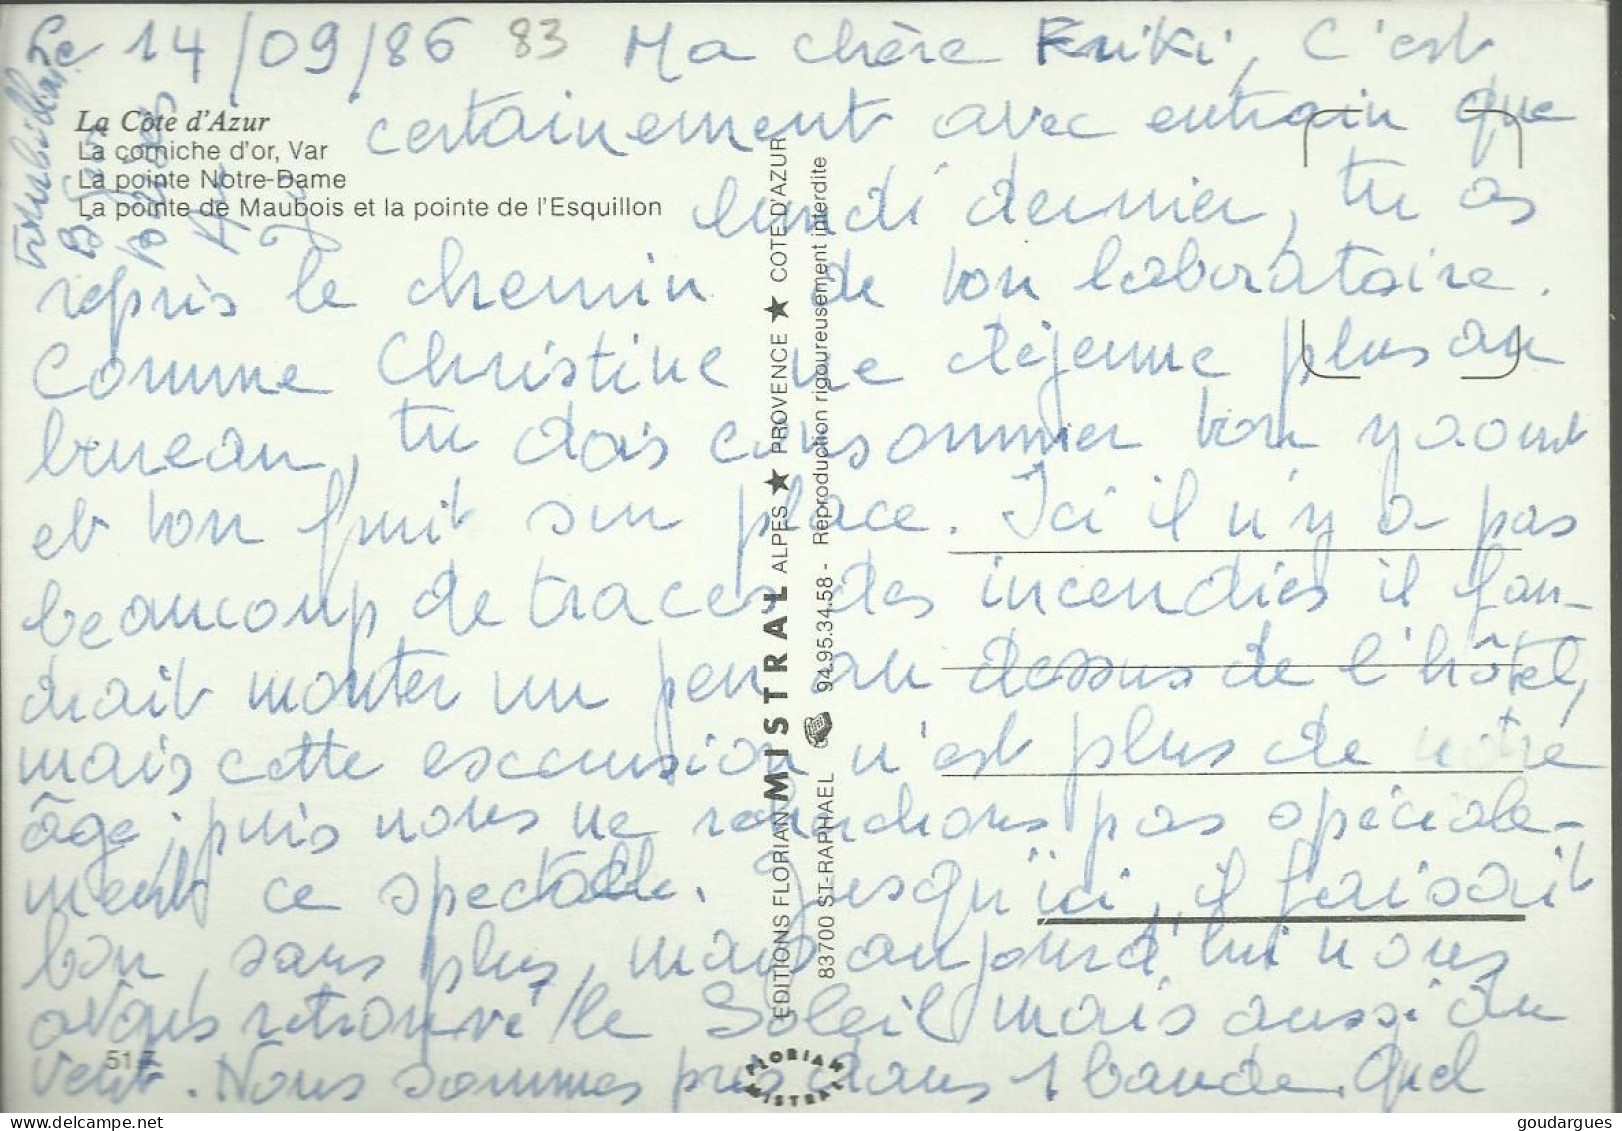 Le 14/09/86 83 Ma chère Kriki, C'est
La Côte d'Azur
certainement avec entrain que
La corniche d'or, Var
La pointe Notre-Dame
La pointe de Maubois et la pointe de l'Esquillon
lundi dernier, tu as
repris le chemin de ton laboratoire.
Comme Christine ne déjeune plus au
bureau, tu dois consommer ton yaourt
et ton fruit sur place. Ici il n'y a pas
beaucoup de traces des incendies il fau-
drait monter un peu au dessus de l'hôtel,
mais cette excursion n'est plus de notre
âge, puis nous ne recherchons pas spéciale-
ment ce spectacle. Jusqu'ici, il faisait
bon, sans plus, mais aujourd'hui nous
avons retrouvé le Soleil mais aussi du
vent. Nous sommes pris dans 1 bande. Quel
517
EDITIONS FLORIAN MISTRAL ALPES ★ PROVENCE ★ COTE D'AZUR
83700 ST-RAPHAEL 94.95.34.58 - Reproduction rigoureusement interdite
FLORIAN MISTRAL
goudargues